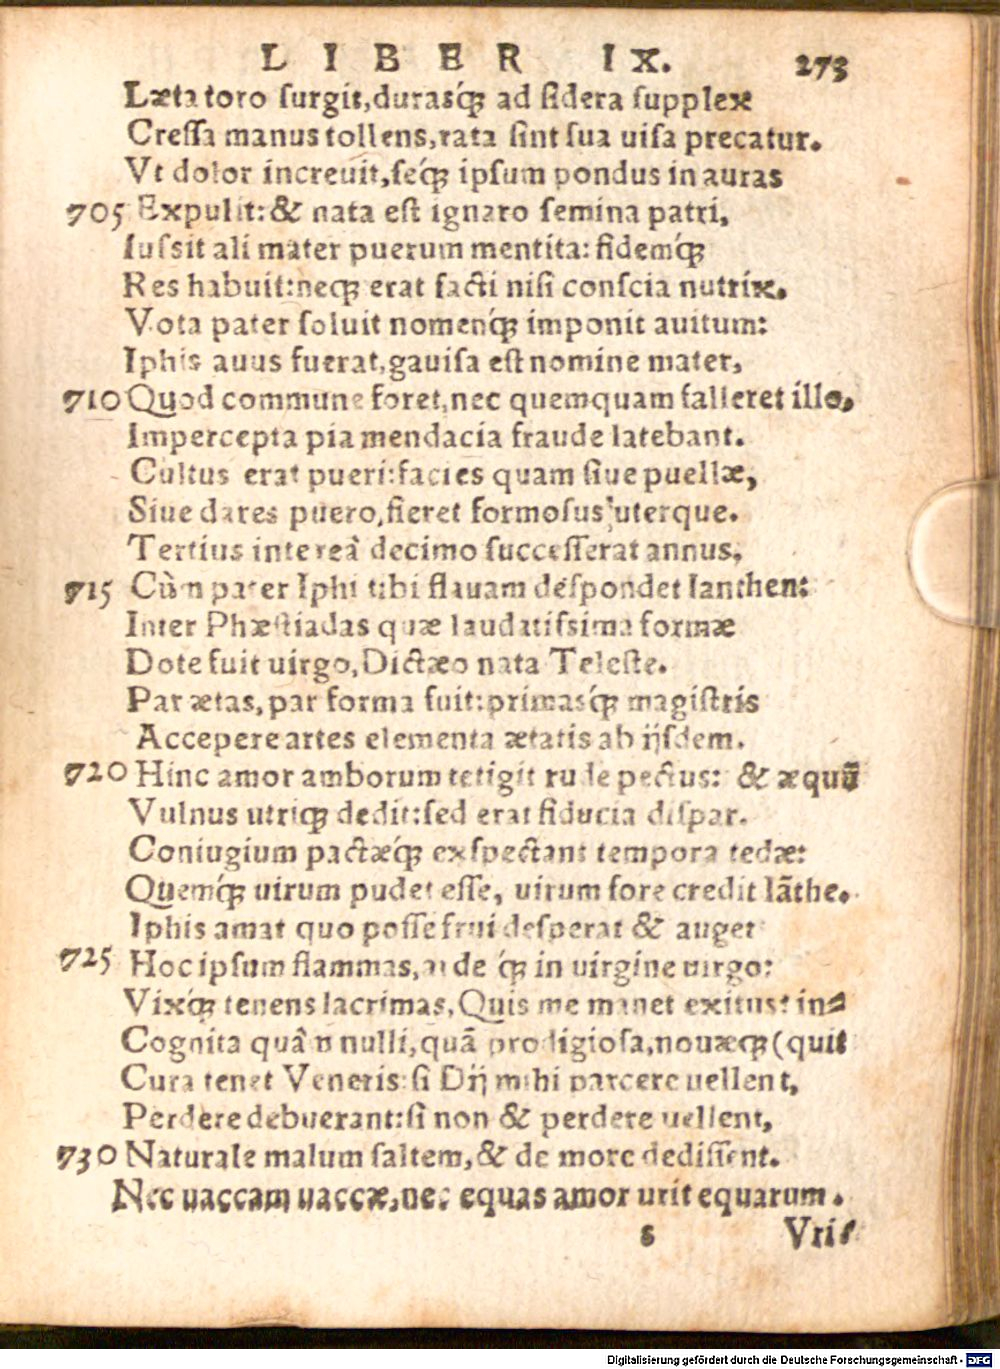 LIBER IX. 273
Læta toro surgit, durasq́ ad sidera supplex
Cressa manus tollens, rata sint sua uisa precatur.
Vt dolor increuit, seq́ ipsum pondus in auras
705 Expulit: & nata est ignaro semina patri,
Iussit ali mater puerum mentita: fidemq́
Res habuit: neq erat facti nisi conscia nutrix.
Vota pater soluit nomenq́ imponit auitum:
Iphis auus fuerat, gauisa est nomine mater,
710 Quod commune foret, nec quemquam falleret illo.
Impercepta pia mendacia fraude latebant.
Cultus erat pueri: facies quam siue puellæ,
Siue dares puero, fieret formosus uterque.
Tertius intereà decimo successerat annus,
715 Cùm pater Iphi tibi flauam despondet Ianthen:
Inter Phæstiadas quæ laudatissima formæ
Dote fuit uirgo, Dictæo nata Teleste.
Par ætas, par forma fuit: primasq́ magistris
Accepere artes elementa ætatis ab ijsdem.
720 Hinc amor amborum tetigit rude pectus: & æquū
Vulnus utriq dedit: sed erat fiducia dispar.
Coniugium pactæq́ exspectant tempora tedæ:
Quemq́ uirum pudet esse, uirum fore credit Iāthe.
Iphis amat quo posse frui desperat & auget
725 Hoc ipsum flammas, ardetq́ in uirgine uirgo:
Vixq́ tenens lacrimas, Quis me manet exitus? in-
Cognita quàm nulli, quā prodigiosa, nouæq (quit
Cura tenet Veneris: si Dij mihi parcere uellent,
Perdere debuerant: si non & perdere uellent,
730 Naturale malum saltem, & de more dedissent.
Nec uaccam uaccæ, nec equas amor urit equarum.
s Vrit
Digitalisierung gefördert durch die Deutsche Forschungsgemeinschaft - DFG